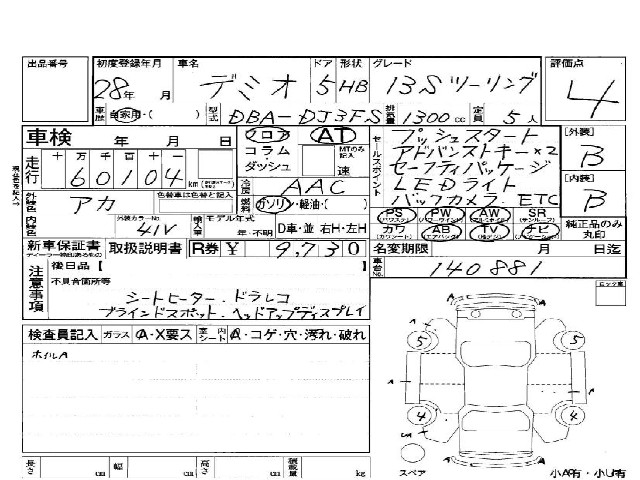 出品番号 初度登録年月 車名 ドア 形状 グレード 評価点
28年 月 デミオ 5 HB 13Sツーリング 4
車歴 自家用・( ) 型式 DBA-DJ3FS 排気量 1300cc 定員 5人
車検 年 月 日 フロア AT セールスポイント プッシュスタート [外装]
走行 十 万 千 百 十 一 コラム MTのみ記入 アドバンストキー×2 B
60104 km ダッシュ 速 セーフティパッケージ
冷房 AAC LEDライト [内装]
外装色 アカ 色替車は色替と記入 燃料 ガソリン・軽油・( ) バックカメラ、ETC B
内装色 外装カラーNo. 41V 輸入車 モデル年式 PS PW AW SR
年・不明 D車・並 右H・左H カワ AB TV ナビ 純正品のみ丸印
新車保証書 取扱説明書 R券 ¥ 9,730 名変期限 月 日迄
注意事項 後日品【 】 車台No. 140881
不具合箇所等 ロック車
シートヒーター、ドラレコ
ブラインドスポット、ヘッドアップディスプレイ
検査員記入 ガラス A・X要ス 室内シート A・コゲ・穴・汚れ・破れ
ホイルA
A
5 5
A A
4 4
A
スペア 小A有・小U有
長さ cm 幅 cm 高さ cm 積載量 kg